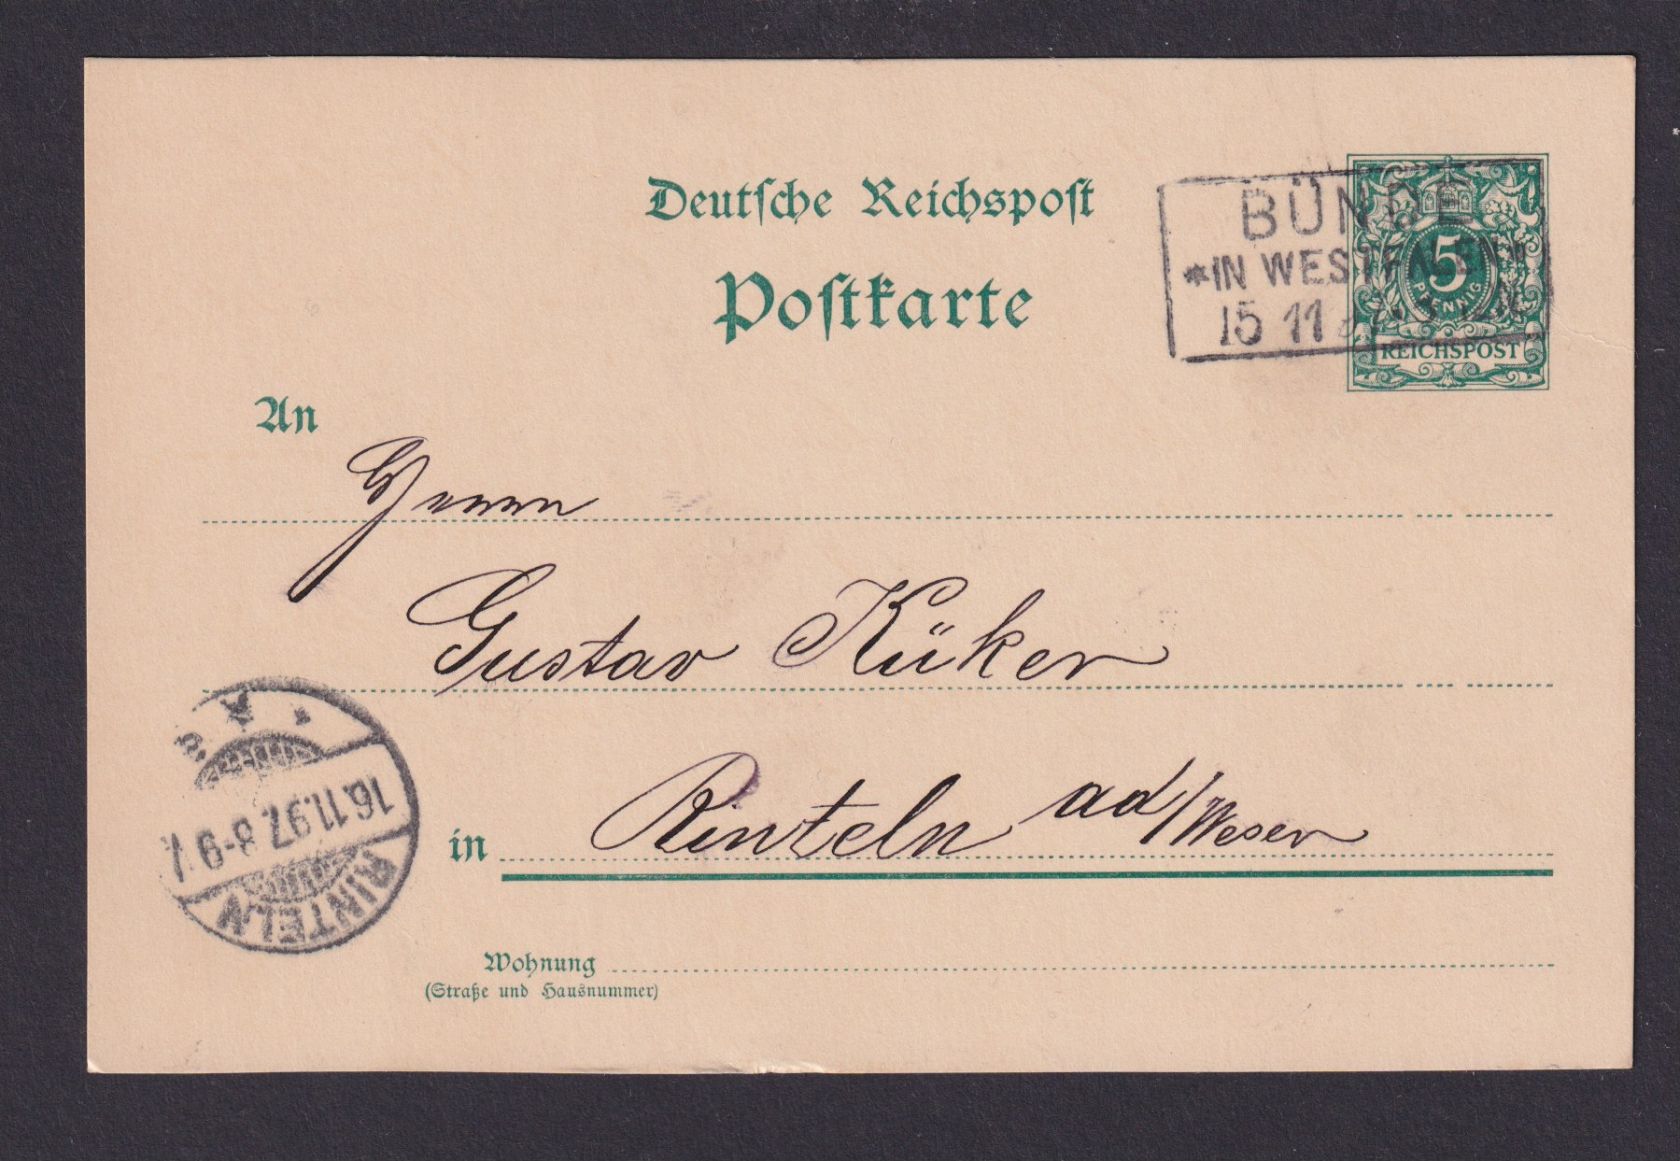 Deutsche Reichspost
Postkarte
BÜNDE
*IN WESTFALEN
15 11
5
PFENNIG
REICHSPOST
An
Herrn
Gustav Küker
in Rinteln ad/Weser
RINTELN
16.11.97. 8-9
Wohnung
(Straße und Hausnummer)